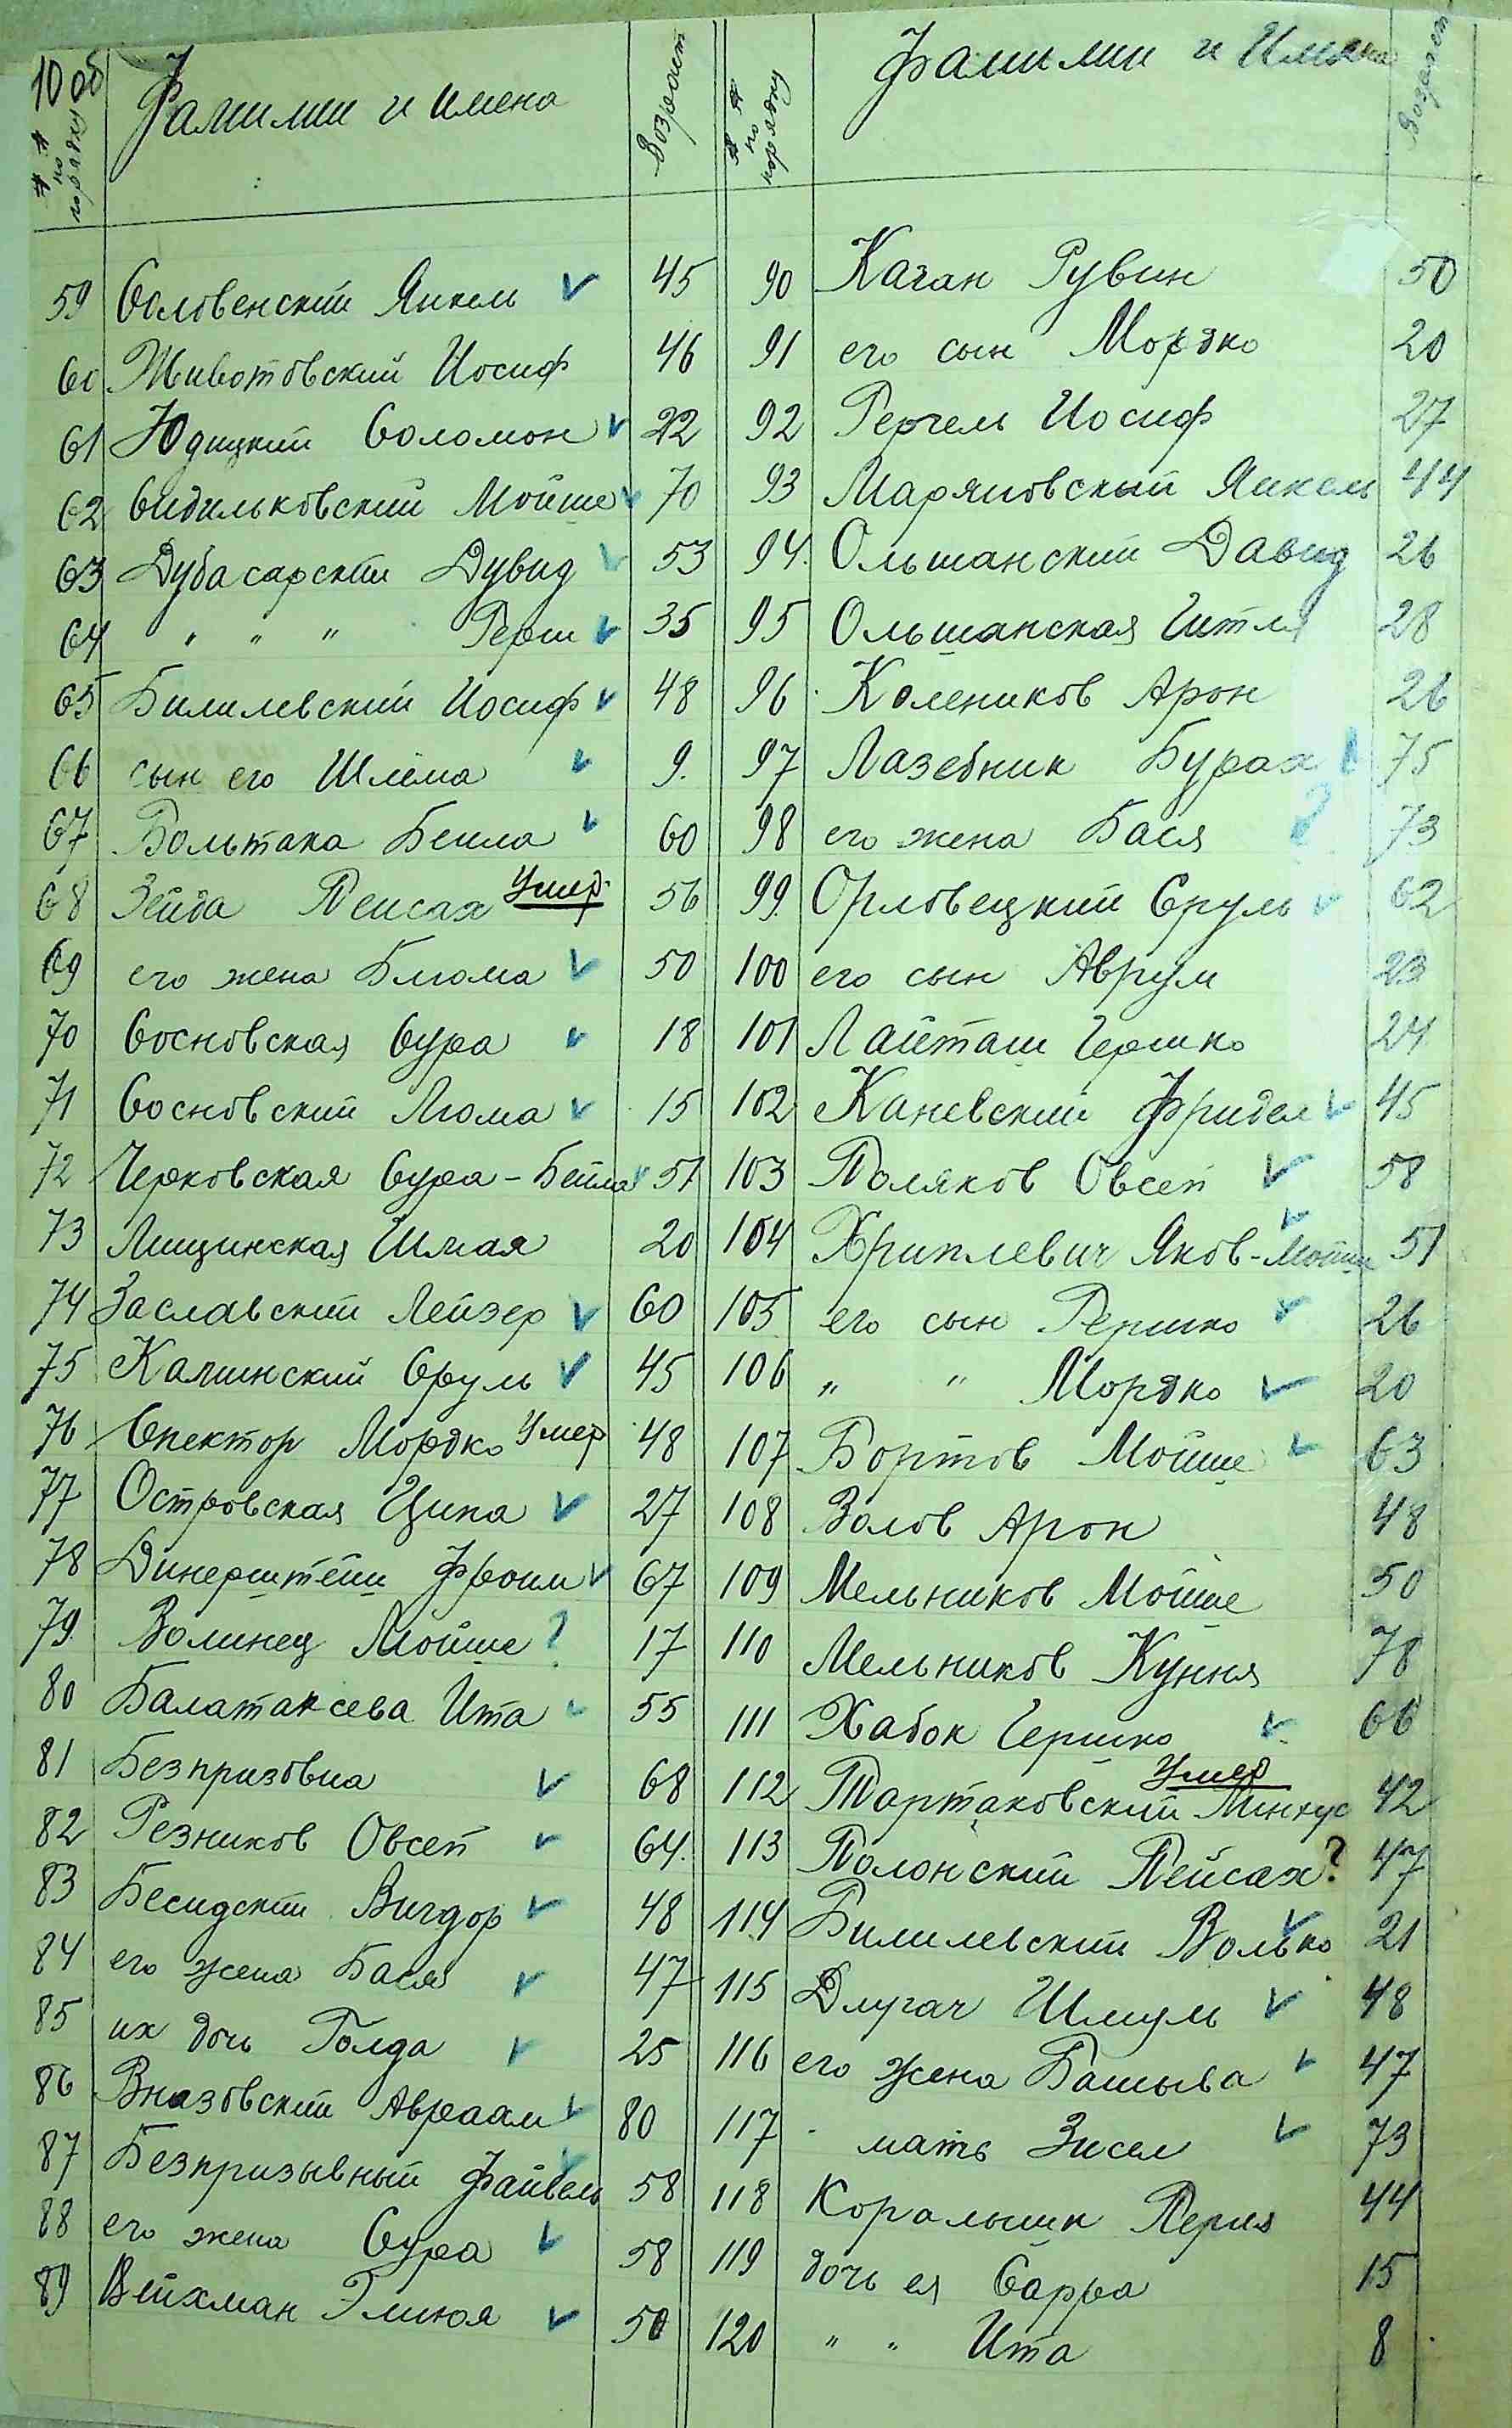 10 об
№ № по порядку Фамилии и имена Возраст
59 Словенский Янкель 45
60 Животовский Иосиф 46
61 Юдицкий Соломон 22
62 Сидильковский Мойше 70
63 Дубасарский Дувид 53
64 " " " Герш 35
65 Билилевский Иосиф 48
66 сын его Шлёма 9.
67 Вольтака Бейла 60
68 Зейда Пейсах Умер. 56
69 его жена Блюма 50
70 Сосновская Сура 18
71 Сосновский Люма 15
72 Черковская Сура-Бейла 51
73 Лищинская Шмая 20
74 Заславский Лейзер 60
75 Калинский Сруль 45
76 Спектор Мордко Умер 48
77 Островская Ципа 27
78 Динерштейн Фроим 67
79. Волинец Мойше ? 17
80 Балатаксева Ита 55
81 Безпризовна 68
82 Резников Овсей 64.
83 Бесидский Вигдор 48
84 его жена Бася 47
85 их дочь Голда 25
86 Вназовский Авраам 80
87 Безпризывный Файвель 58
88 его жена Сура 58
89 Вейхман Элюкя 50
№ № по порядку Фамилии и Имена Возраст
90 Каган Рувин 50
91 его сын Мордко 20
92 Герчель Иосиф 27
93 Маряновский Янкель 44
94. Ольшанский Давид 26
95 Ольшанская Гитля 28
96 Колеников Арон 26
97 Лазебник Бурах 75
98 его жена Бася ? 73
99. Орловецкий Сруль 62
100 его сын Аврум 23
101 Лайташ Гершко 24
102 Каневский Фридел 45
103 Поляков Овсей 58
104 Хриплевич Яков-Мойше 51
105 его сын Гершко 26
106 " " Мордко 20
107 Бортов Мойше 63
108 Волов Арон 48
109 Мельников Мойше 50
110 Мельников Куння 78
111 Хабок Гершко 66
112 Тартаковский Минкус Умер 42
113 Полонский Пейсах ? 47
114 Билилевский Волько 21
115 Длугач Шмуль 48
116 его жена Башыва 47
117 мать Зисел 73
118 Коральник Перля 44
119 дочь ея Сарра 15
120 " " Ита 8